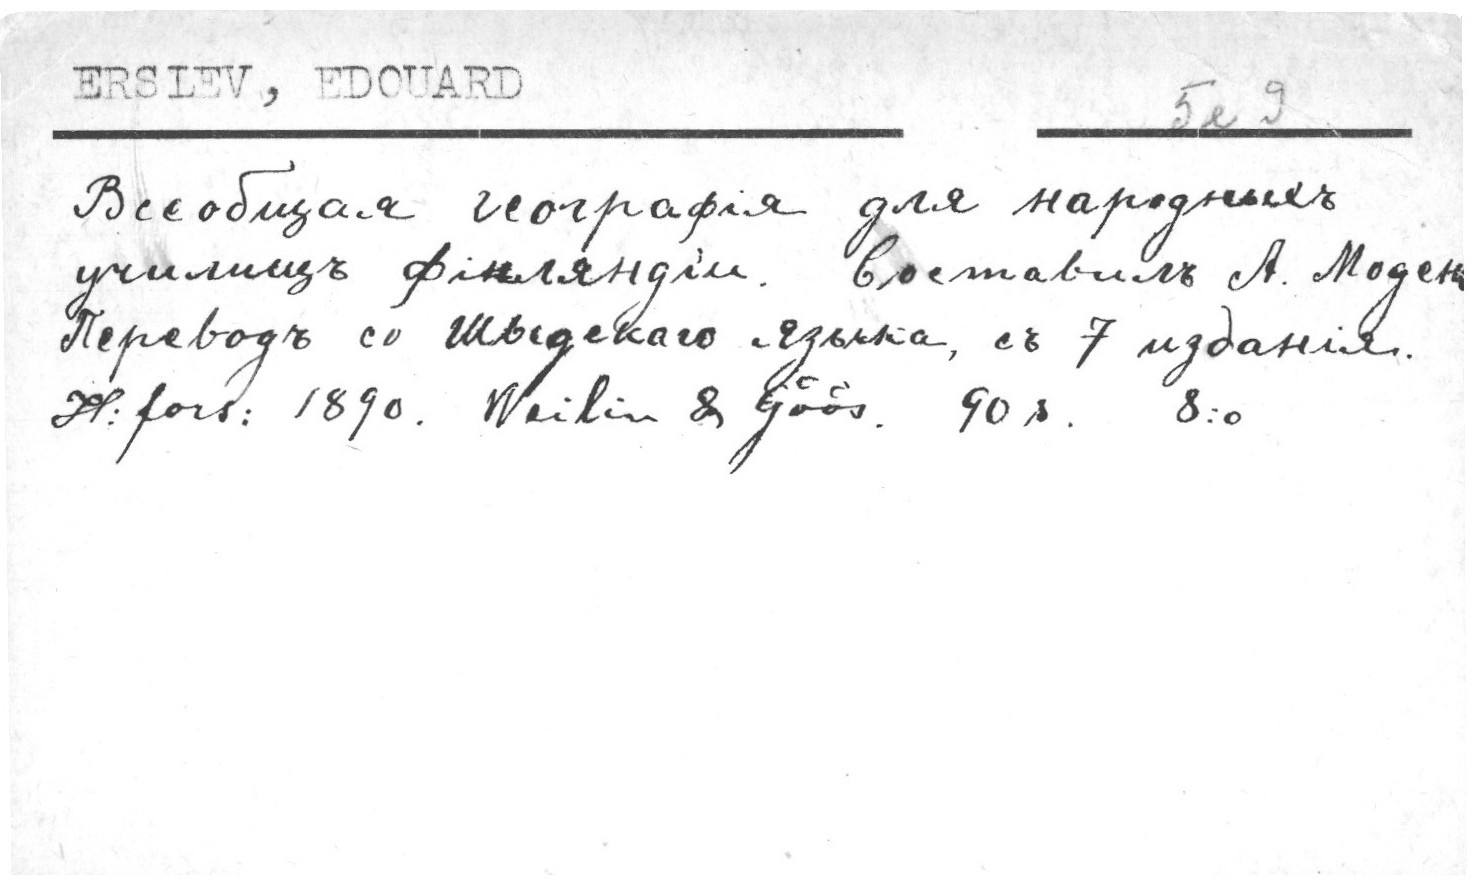 ERSLEV, EDOUARD
5 e 9
Всеобщая географія для народныхъ
училищъ Фінляндіи. Составилъ А. Моденъ
Переводъ со Шведскаго языка, съ 7 изданія.
H:fors: 1890. Weilin & Göös. 90 s. 8:o